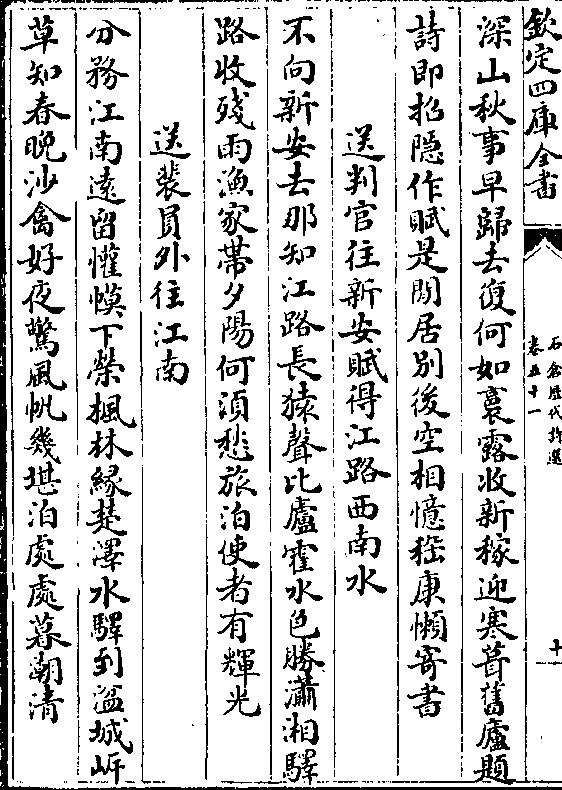 欽定四庫全書
石倉歷代詩選
卷五十一
十
深山秋事早歸去復何如裛露收新稼迎寒葺舊廬題
詩即招隱作賦是閒居別後空相憶嵇康懶寄書
送判官往新安賦得江路西南水
不向新安去那知江路長猿聲比廬霍水色勝瀟湘驛
路收殘雨漁家帶夕陽何須愁旅泊使者有輝光
送裴員外往江南
分務江南遠留懽幙下榮楓林緣楚澤水驛到湓城岍
草知春晩沙禽好夜驚風帆幾堪泊處處暮潮清